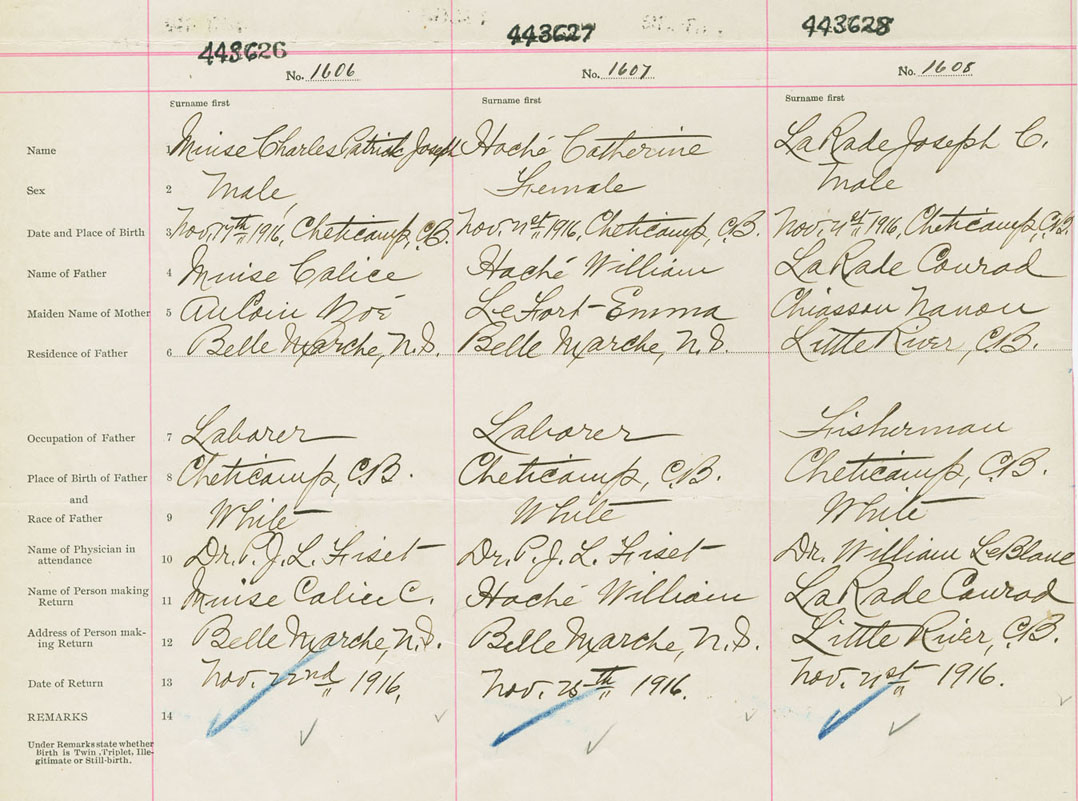 443626 443627 443628
No. 1606 No. 1607 No. 1608
Surname first Surname first Surname first
Name 1 Muise Charles Patrick Joseph Haché Catherine LaRade Joseph C.
Sex 2 Male, Female Male
Date and Place of Birth 3 Nov. 17th 1916, Cheticamp, C.B. Nov. 21st 1916, Cheticamp, C.B. Nov. 21st 1916, Cheticamp, C.B.
Name of Father 4 Muise Calice Haché William LaRade Conrad
Maiden Name of Mother 5 AuCoin Zoé LeFort-Emma Chiasson Nanon
Residence of Father 6 Belle Marche, N.S. Belle Marche, N.S. Little River, C.B.
Occupation of Father 7 Laborer Laborer Fisherman
Place of Birth of Father 8 Cheticamp, C.B. Cheticamp, C.B. Cheticamp, C.B.
and
Race of Father 9 White White White
Name of Physician in
attendance 10 Dr. P. J. L. Fiset Dr. P. J. L. Fiset Dr. William LeBlanc
Name of Person making
Return 11 Muise Calice C. Haché William LaRade Conrad
Address of Person mak-
ing Return 12 Belle Marche, N.S. Belle Marche, N.S. Little River, C.B.
Date of Return 13 Nov. 22nd 1916, Nov. 25th 1916. Nov. 21st 1916.
REMARKS 14
Under Remarks state whether
Birth is Twin, Triplet, Ille-
gitimate or Still-birth.